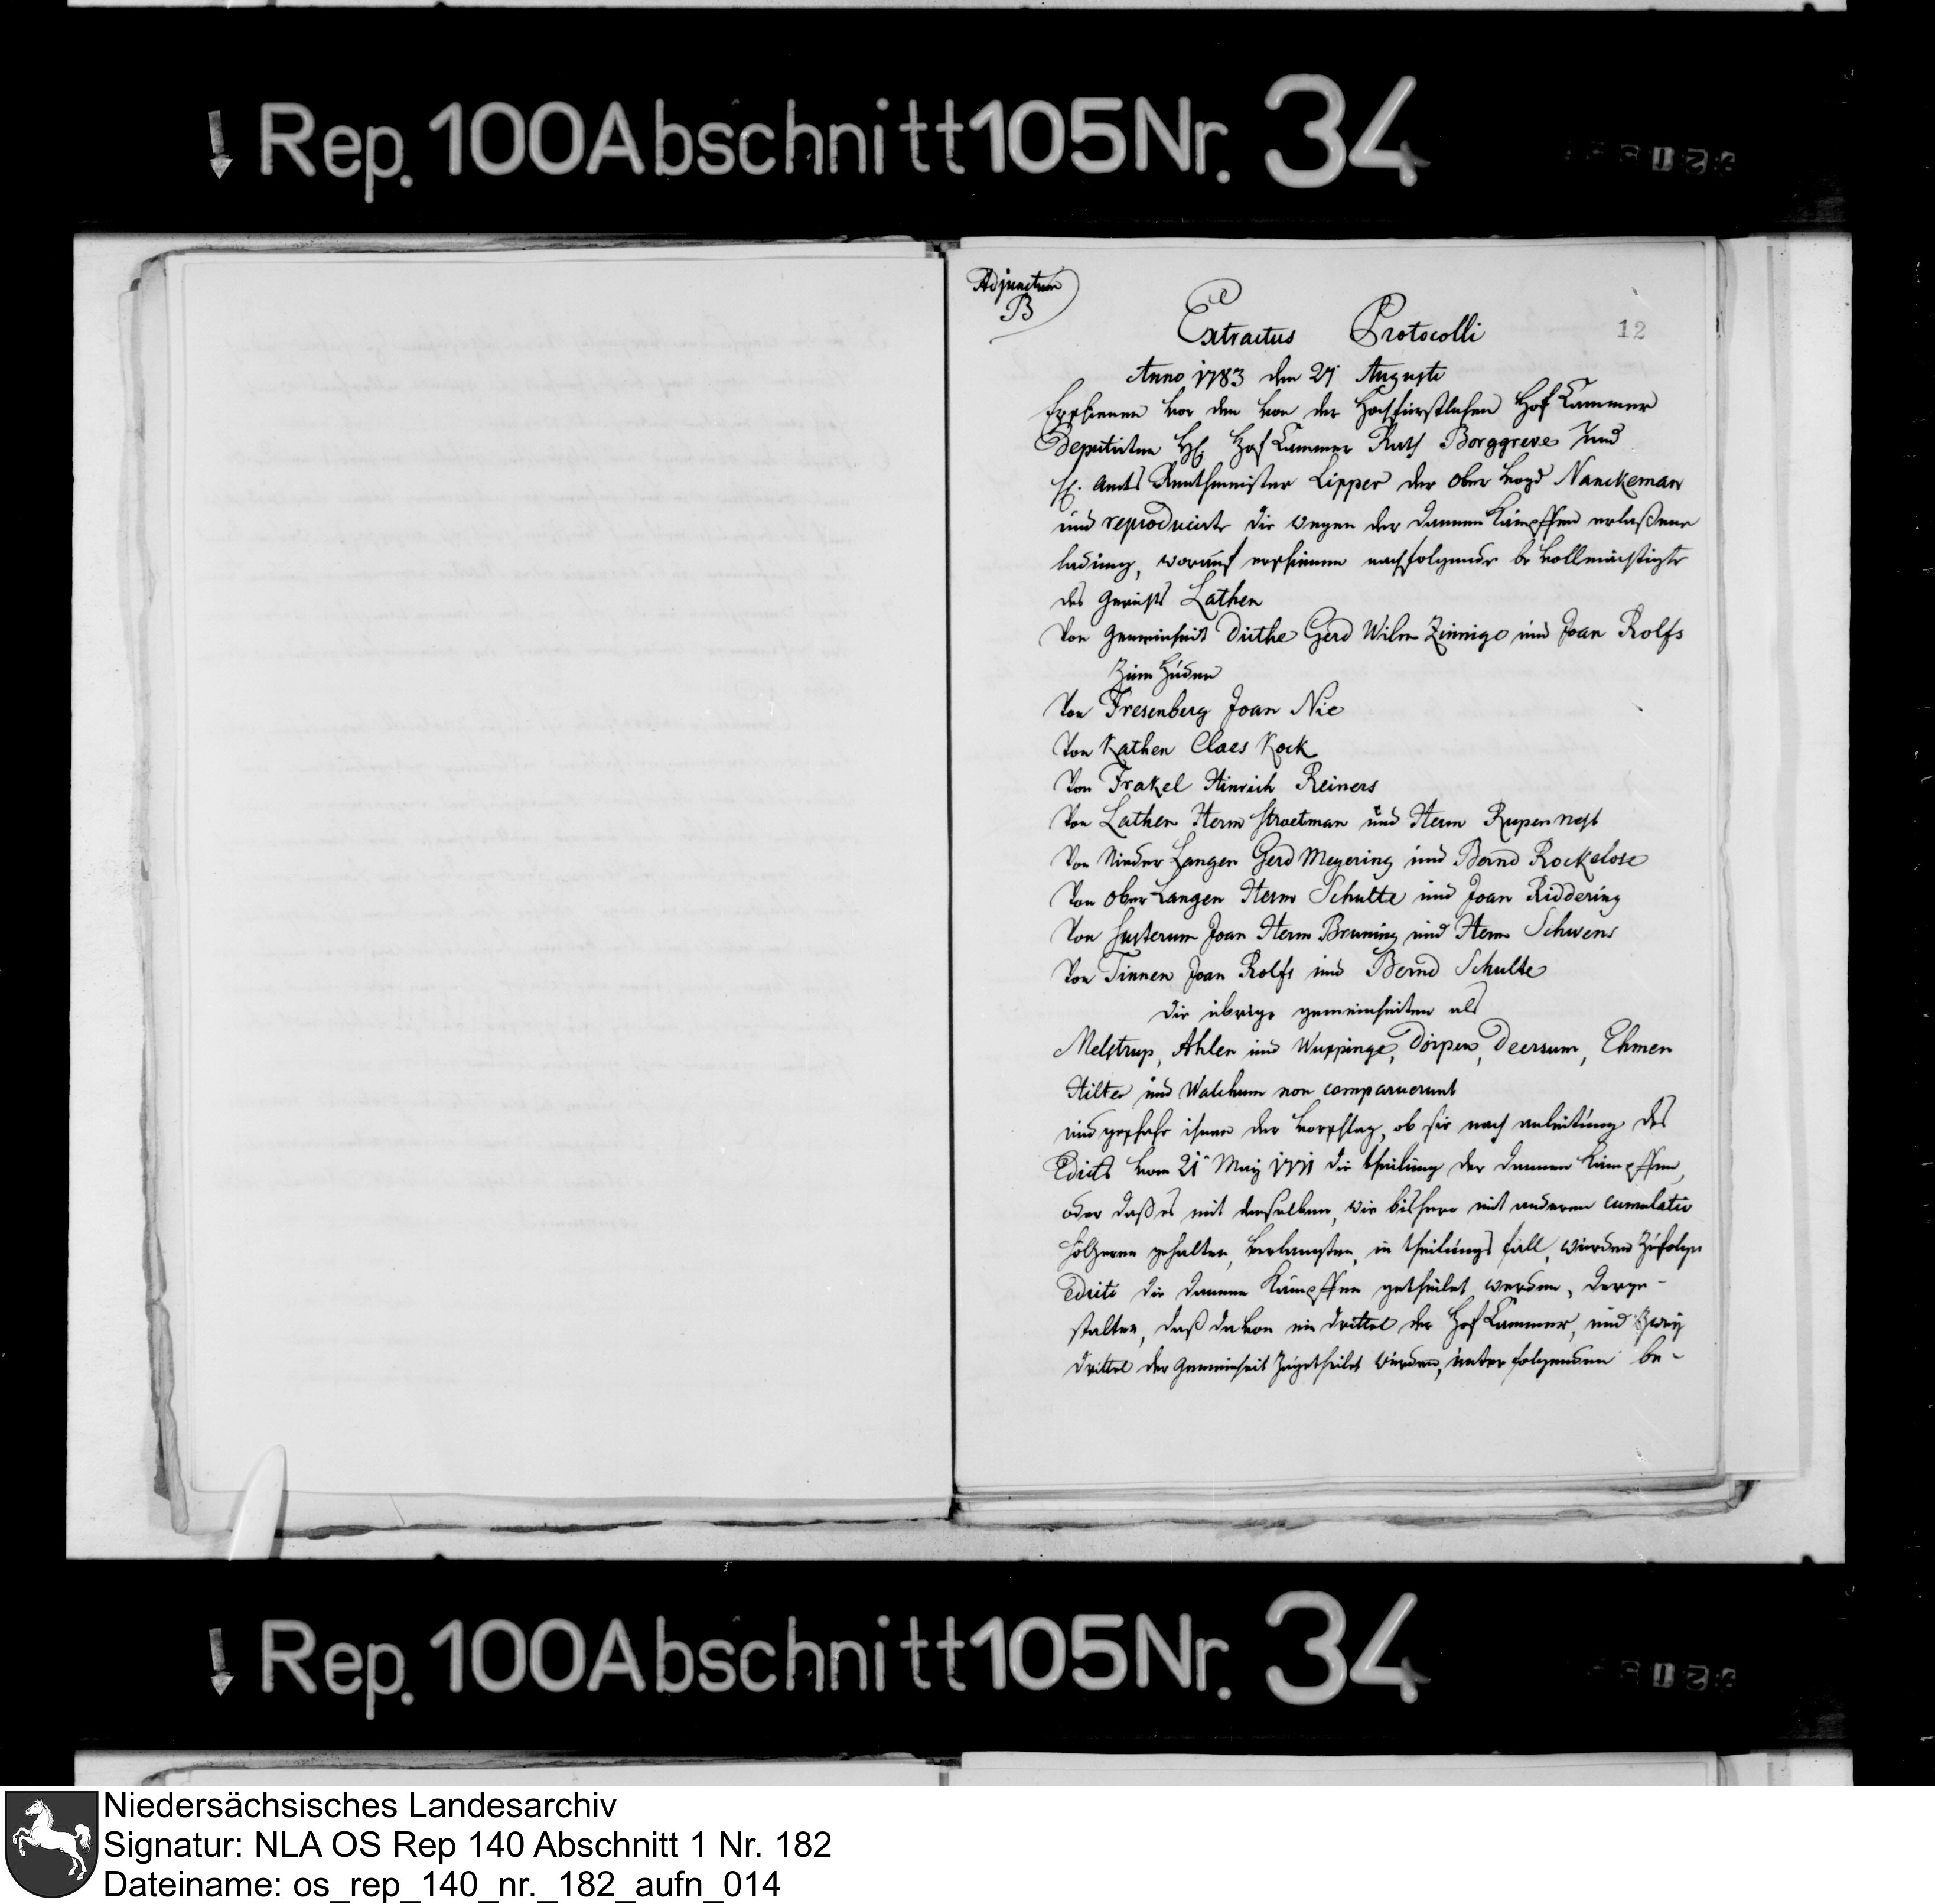 Rep. 100 Abschnitt 105 Nr. 34
Adjunctum
B
12
Extractus Protocolli
Anno 1783 den 27 Augusti
Erschienen vor dem von der Hochfürstlichen Hof Cammer
Deputirten H. Hof Cammer Rath Borggreve und
H. Amts Rentmeister Lipper der Ober Vogd Nanckeman
und reproducirte die wegen der dannen Kämpffen erlaßene
ladung, worauf erschienen nachfolgende bevollmächtigte
des Gerichts Lathen
Von Gemeinheit Düthe Gerd Wilm Zinnige und Joan Rolfs
zum Hüden
Von Fresenberg Joan Nie
Von Kathen Claes Kock
Von Frakel Hinrich Reiners
Von Lathen Herm Stroetman und Herm Rupennest
Von Nieder Langen Gerd Meyering und Bernd Rockelose
Von Ober Langen Herm Schulte und Joan Riddering
Von Susterum Joan Herm Bruning und Herm Schwens
Von Tinnen Joan Rolfs und Bernd Schulte
die übrige gemeinheiten als
Melstrup, Ahlen und Wuppinge, Dörpen, Deersum, Ehmen
Hilter und Walchum non comparuerunt
und geschahe ihnen der Vorschlag, ob sie nach anleitung des
Edicts vom 21 May 1771 die theilung der dannen Kämpffen,
oder daß es mit denselben, wie bishero mit anderen cumulativ
höltzeren gehalten, verlangten, in theilungs fall, würden zufolge
Edicti die dannen Kämpffen getheilet werden, derge-
stalten, daß davon ein drittel der Hof Cammer, und zwey
drittel der Gemeinheit zugetheilet würden, unter folgenden be-
Rep. 100 Abschnitt 105 Nr. 34
Niedersächsisches Landesarchiv
Signatur: NLA OS Rep 140 Abschnitt 1 Nr. 182
Dateiname: os_rep_140_nr._182_aufn_014